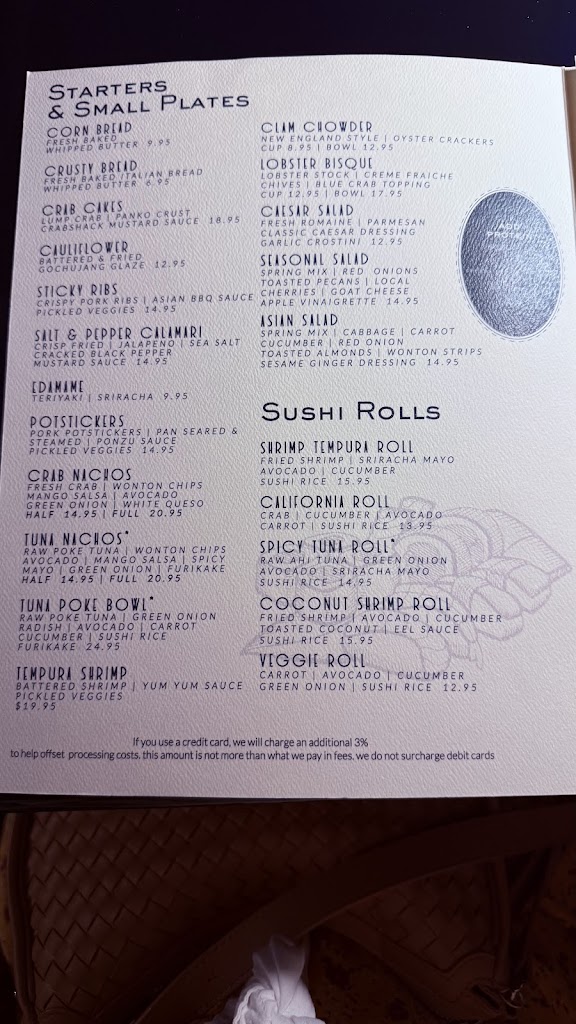 STARTERS
& SMALL PLATES
CORN BREAD
FRESH BAKED
WHIPPED BUTTER 9.95
CRUSTY BREAD
FRESH BAKED ITALIAN BREAD
WHIPPED BUTTER 6.95
CRAB CAKES
LUMP CRAB | PANKO CRUST
CRABSHACK MUSTARD SAUCE 18.95
CAULIFLOWER
BATTERED & FRIED
GOCHUJANG GLAZE 12.95
STICKY RIBS
CRISPY PORK RIBS | ASIAN BBQ SAUCE
PICKLED VEGGIES 14.95
SALT & PEPPER CALAMARI
CRISP FRIED | JALAPENO | SEA SALT
CRACKED BLACK PEPPER
MUSTARD SAUCE 14.95
EDAMAME
TERIYAKI | SRIRACHA 9.95
POTSTICKERS
PORK POTSTICKERS | PAN SEARED &
STEAMED | PONZU SAUCE
PICKLED VEGGIES 14.95
CRAB NACHOS
FRESH CRAB | WONTON CHIPS
MANGO SALSA | AVOCADO
GREEN ONION | WHITE QUESO
HALF 14.95 | FULL 20.95
TUNA NACHOS*
RAW POKE TUNA | WONTON CHIPS
AVOCADO | MANGO SALSA | SPICY
MAYO | GREEN ONION | FURIKAKE
HALF 14.95 | FULL 20.95
TUNA POKE BOWL*
RAW POKE TUNA | GREEN ONION
RADISH | AVOCADO | CARROT
CUCUMBER | SUSHI RICE
FURIKAKE 24.95
TEMPURA SHRIMP
BATTERED SHRIMP | YUM YUM SAUCE
PICKLED VEGGIES
$19.95
CLAM CHOWDER
NEW ENGLAND STYLE | OYSTER CRACKERS
CUP 8.95 | BOWL 12.95
LOBSTER BISQUE
LOBSTER STOCK | CREME FRAICHE
CHIVES | BLUE CRAB TOPPING
CUP 12.95 | BOWL 17.95
CAESAR SALAD
FRESH ROMAINE | PARMESAN
CLASSIC CAESAR DRESSING
GARLIC CROSTINI 12.95
SEASONAL SALAD
SPRING MIX | RED ONIONS
TOASTED PECANS | LOCAL
CHERRIES | GOAT CHEESE
APPLE VINAIGRETTE 14.95
ASIAN SALAD
SPRING MIX | CABBAGE | CARROT
CUCUMBER | RED ONION
TOASTED ALMONDS | WONTON STRIPS
SESAME GINGER DRESSING 14.95
SUSHI ROLLS
SHRIMP TEMPURA ROLL
FRIED SHRIMP | SRIRACHA MAYO
AVOCADO | CUCUMBER
SUSHI RICE 15.95
CALIFORNIA ROLL
CRAB | CUCUMBER | AVOCADO
CARROT | SUSHI RICE 13.95
SPICY TUNA ROLL*
RAW AHI TUNA | GREEN ONION
AVOCADO | SRIRACHA MAYO
SUSHI RICE 14.95
COCONUT SHRIMP ROLL
FRIED SHRIMP | AVOCADO | CUCUMBER
TOASTED COCONUT | EEL SAUCE
SUSHI RICE 15.95
VEGGIE ROLL
CARROT | AVOCADO | CUCUMBER
GREEN ONION | SUSHI RICE 12.95
If you use a credit card, we will charge an additional 3%
to help offset processing costs. this amount is not more than what we pay in fees. we do not surcharge debit cards